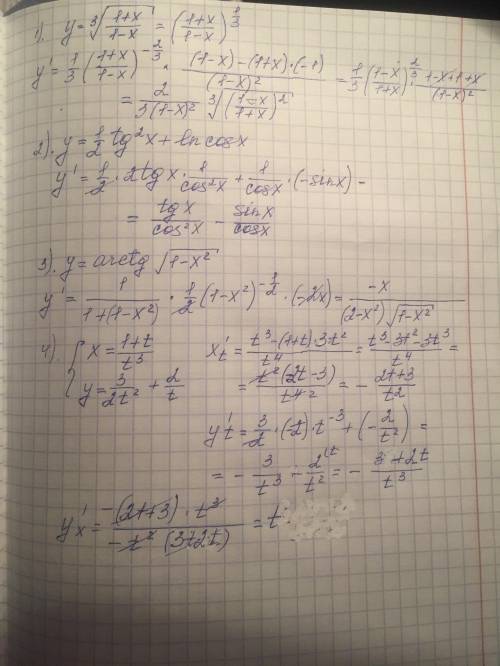 1). y = ∛((1+x)/(1-x)) = ((1+x)/(1-x))^(1/3)
y' = 1/3 ((1+x)/(1-x))^(-2/3) · ((1-x)-(1+x)·(-1))/(1-x)² = 1/3 ((1-x)/(1+x))^(2/3) · (1-x+1+x)/(1-x)²
= 2/(3(1-x)²) ∛(((1-x)/(1+x))²)
2). y = 1/2 tg²x + ln cosx
y' = 1/2 · 2tgx · 1/cos²x + 1/cosx · (-sinx) -
= tgx/cos²x - sinx/cosx
3). y = arctg √(1-x²)
y' = 1/(1+(1-x²)) · 1/2 (1-x²)^(-1/2) · (-2x) = -x/((2-x²)√(1-x²))
4). { x = (1+t)/t³ x't = (t³-(1+t)·3t²)/t⁴ = (t³-3t²-3t³)/t⁴ =
y = 3/(2t²) + 2/t = t²(2t-3)/t⁴ ² = - (2t+3)/t²
y't = 3/2 · (-2) · t⁻³ + (-2/t²) =
= - 3/t³ - 2\t/t² = - (3+2t)/t³
y'x = -(2t+3)·t³/(-t²(3+2t)) = t